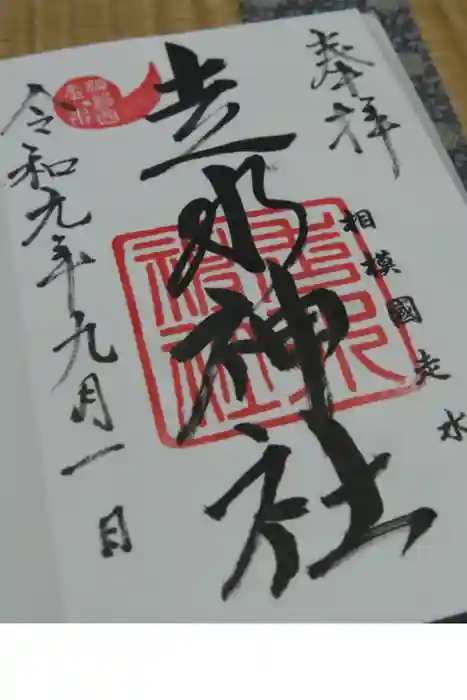 奉拝
相模國走水
走水神社
走水神社
令和九年九月一日